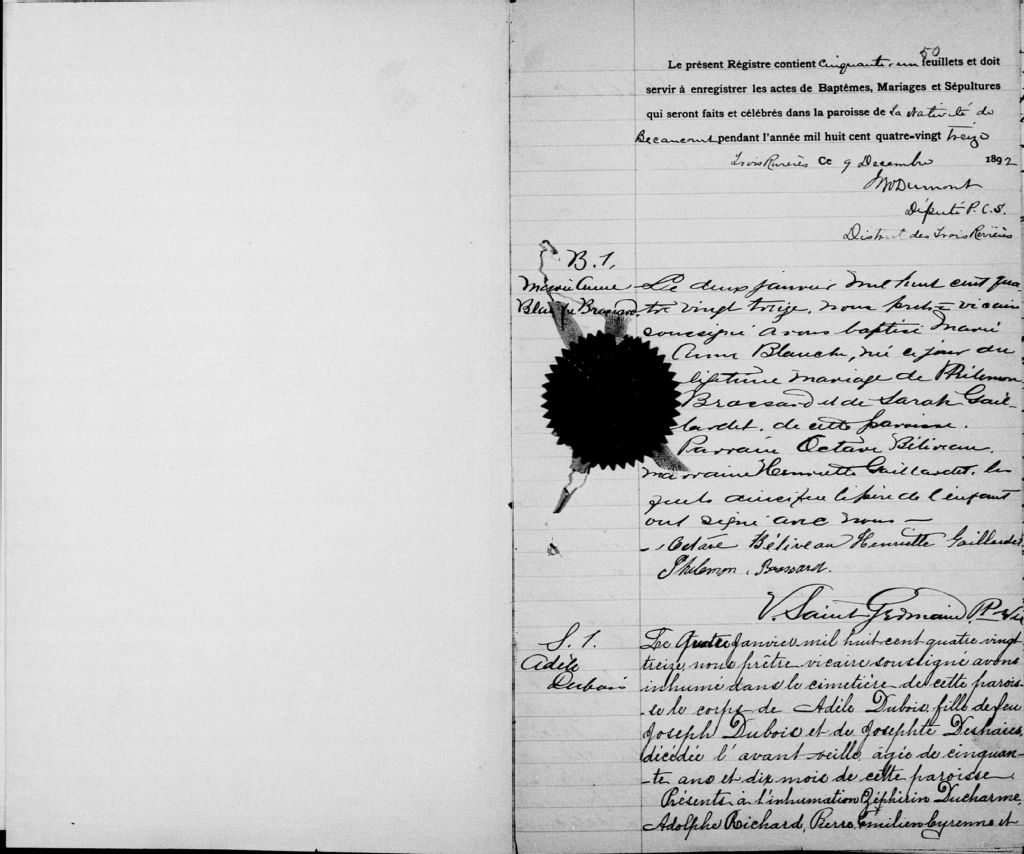 50
Le présent Régistre contient Cinquante-un feuillets et doit
servir à enregistrer les actes de Baptêmes, Mariages et Sépultures
qui seront faits et célébrés dans la paroisse de La Nativité de
Becancourt pendant l'année mil huit cent quatre-vingt Treize
Trois Rivières Ce 9 Decembre 1892
Dumont
Député P. C. S.
District des Trois Rivières
B. 1,
Marie Anne
Blanche Brassard
Le deux janvier mil huit cent qua
tre vingt treize, nous pretre vicaire
soussigné avons baptisé Marie
Anne Blanche, né ce jour du
légitime mariage de Philemon
Brassard et de Sarah Gail-
lardet, de cette paroisse.
Parrain Octave Béliveau,
marraine Henriette Gaillardet, les
quels ainsi que le père de l'enfant
ont signé avec nous —
Octave Béliveau Henriette Gaillardet
Philemon Brassard.
V. Saint Germain, Ptre Vic
S. 1.
Adèle
Dubois
Le quatre janvier mil huit cent quatre vingt
treize, nous prêtre vicaire soussigné avons
inhumé dans le cimetière de cette parois-
-se le corps de Adèle Dubois, fille de feu
Joseph Dubois et de Josephte Deshaies,
décédée l'avant veille âgée de cinquan-
-te ans et dix mois de cette paroisse.
Présents à l'inhumation Zéphirin Ducharme,
Adolphe Richard, Pierre, Emilien Cyrenne et